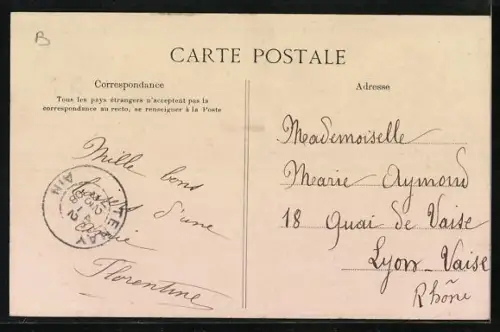 B
CARTE POSTALE
Correspondance
Tous les pays étrangers n'acceptent pas la
correspondance au recto, se renseigner à la Poste
Mille bons
baisers d'une
amie
Florentine
AIN
Adresse
Mademoiselle
Marie Aymond
18 Quai de Vaise
Lyon-Vaise
Rhône